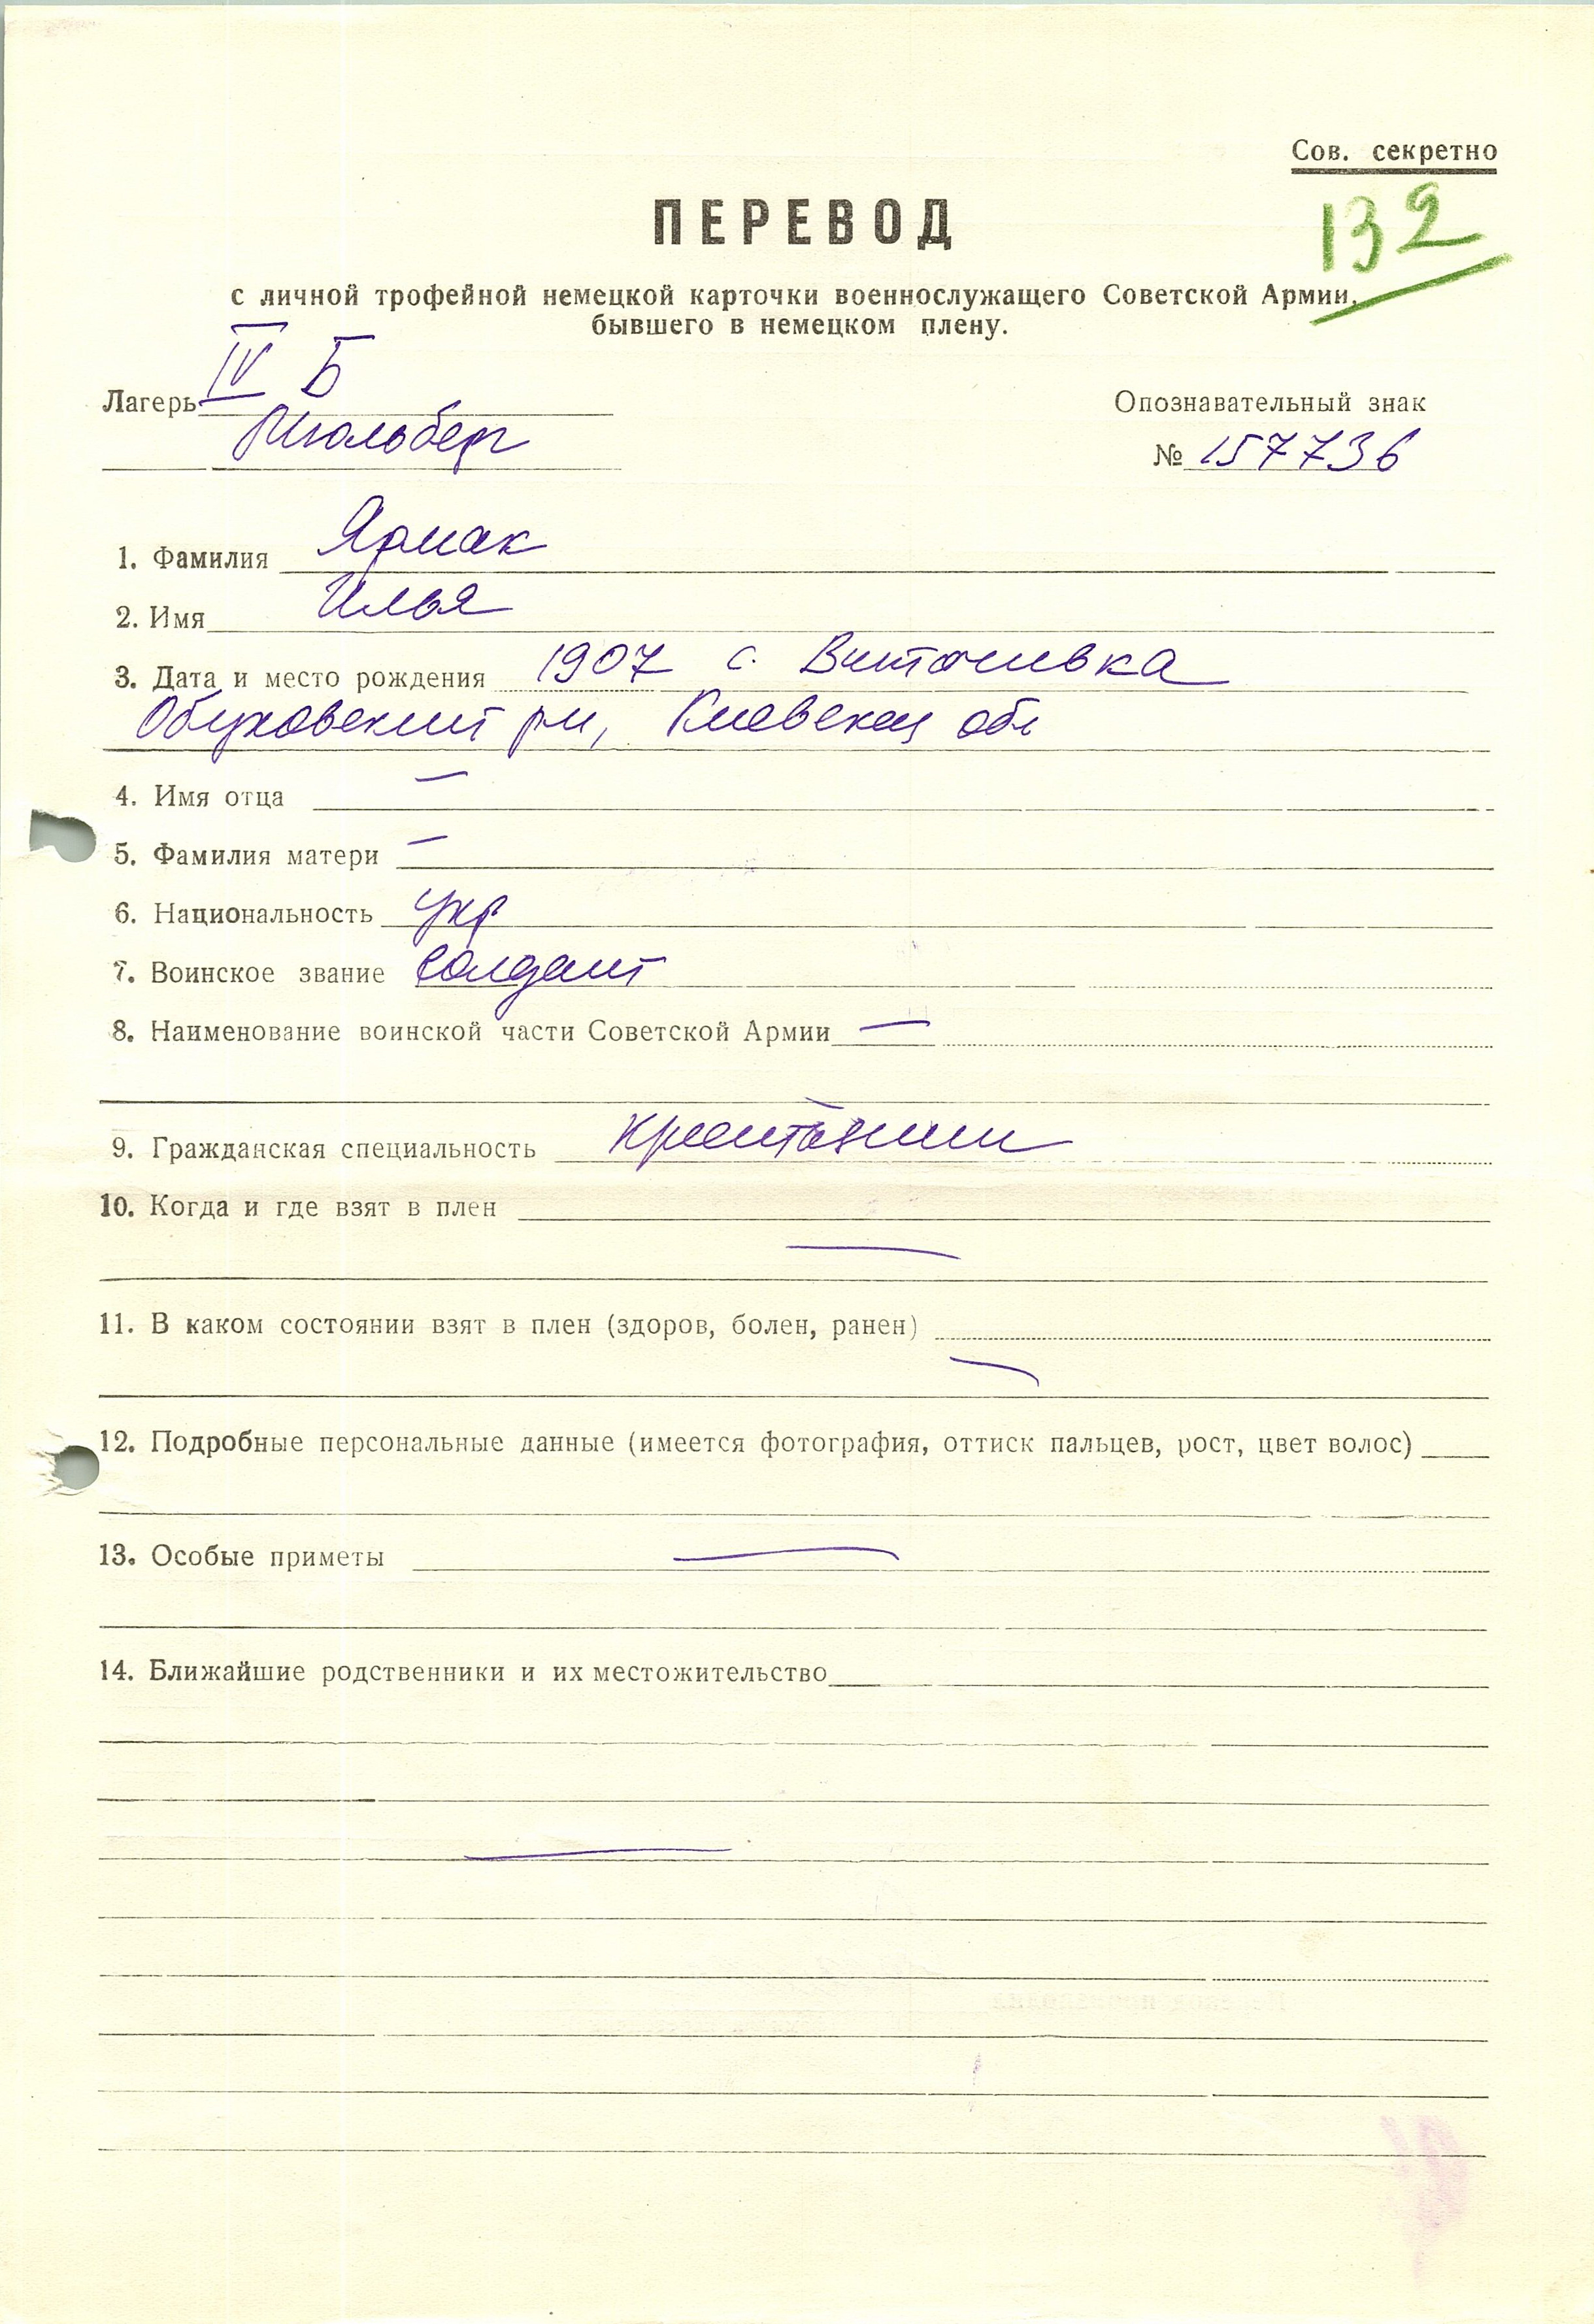 Сов. секретно
132
ПЕРЕВОД
с личной трофейной немецкой карточки военнослужащего Советской Армии,
бывшего в немецком плену.
Лагерь IV Б
Мюльберг
Опознавательный знак
№ 157736
1. Фамилия Ярмак
2. Имя Илья
3. Дата и место рождения 1907 с.
Обуховский р-н, Киевская обл
4. Имя отца —
5. Фамилия матери —
6. Национальность укр
7. Воинское звание солдат
8. Наименование воинской части Советской Армии —
9. Гражданская специальность крестьянин
10. Когда и где взят в плен
—
11. В каком состоянии взят в плен (здоров, болен, ранен)
—
12. Подробные персональные данные (имеется фотография, оттиск пальцев, рост, цвет волос)
13. Особые приметы —
14. Ближайшие родственники и их местожительство
—